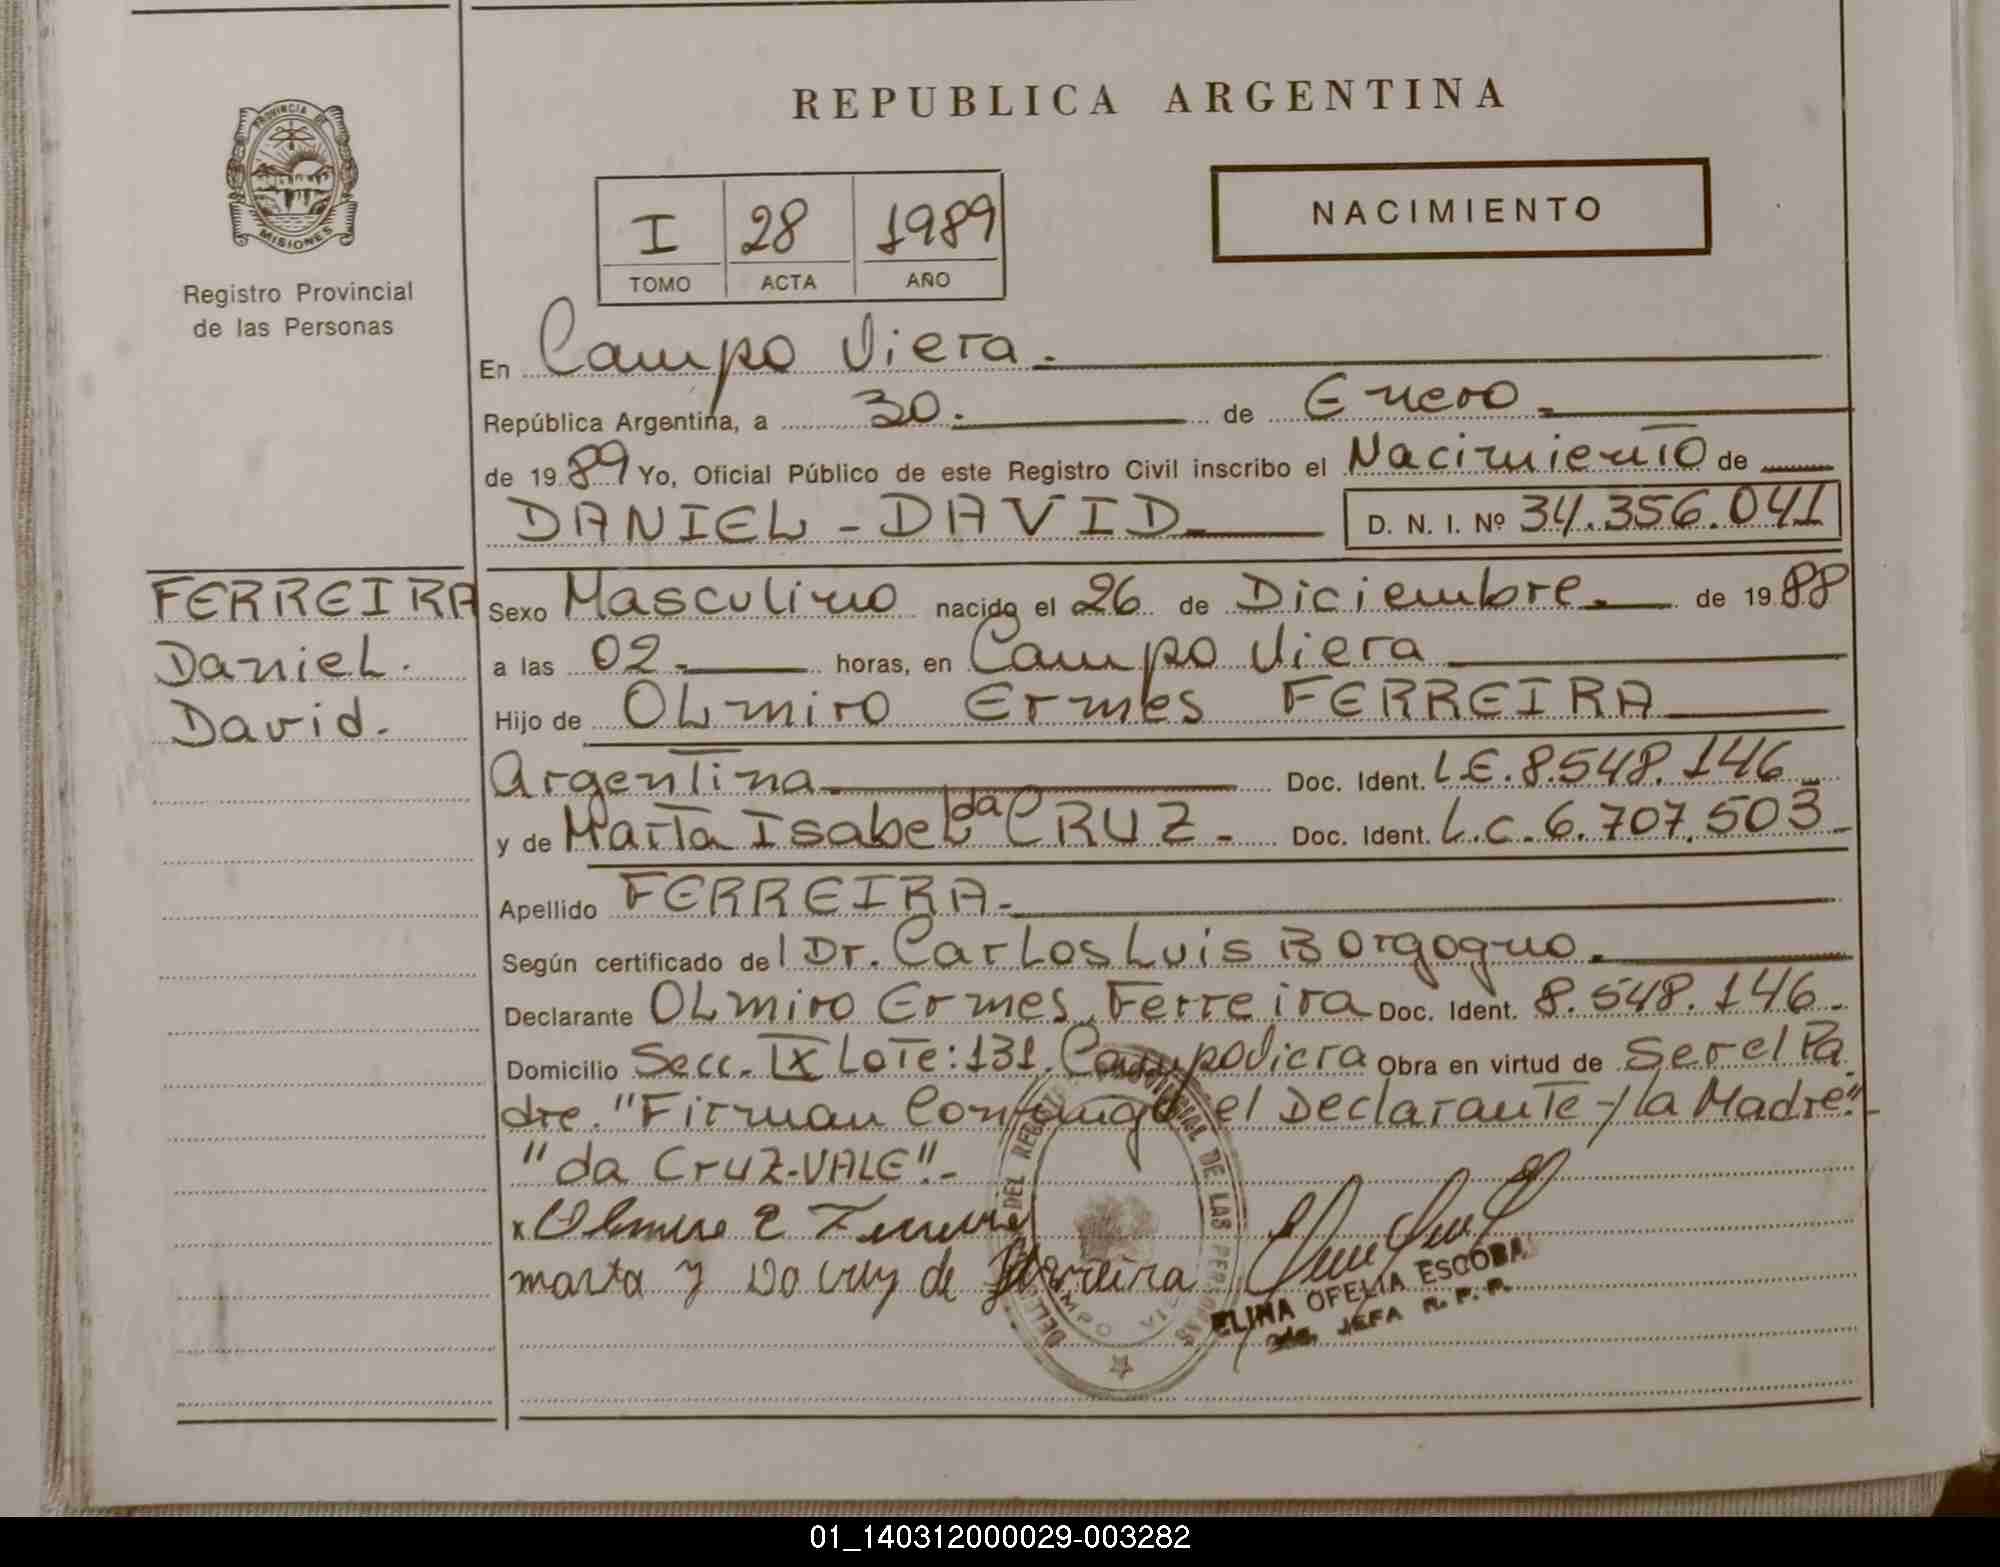 REPUBLICA ARGENTINA
PROVINCIA DE
MISIONES
Registro Provincial
de las Personas
I 28 1989
TOMO ACTA AÑO
NACIMIENTO
En Campo Viera.
República Argentina, a 30. de Enero.
de 1989 Yo, Oficial Público de este Registro Civil inscribo el Nacimiento de
DANIEL - DAVID D. N. I. Nº 34.356.041
FERREIRA
Daniel.
David.
Sexo Masculino nacido el 26 de Diciembre. de 1988
a las 02. horas, en Campo Viera
Hijo de OLmiro Ermes FERREIRA
Argentina. Doc. Ident. L.E. 8.548.146
y de Marta Isabel da CRUZ. Doc. Ident. L.C. 6.707.503
Apellido FERREIRA.
Según certificado del Dr. Carlos Luis Borgogno.
Declarante OLmiro Ermes Ferreira Doc. Ident. 8.548.146.
Domicilio Secc. IX Lote: 131. Campo Viera Obra en virtud de Ser el Pa
dre. "Firman Conmigo el Declarante y la Madre".
"da Cruz-VALE".-
x Olmiro E Ferreira
marta y Da Cruz de Ferreira
DEL REGISTRO PROVINCIAL DE LAS PERSONAS
ELINA OFELIA ESCOBAR
JEFA R. P. P.
01_140312000029-003282